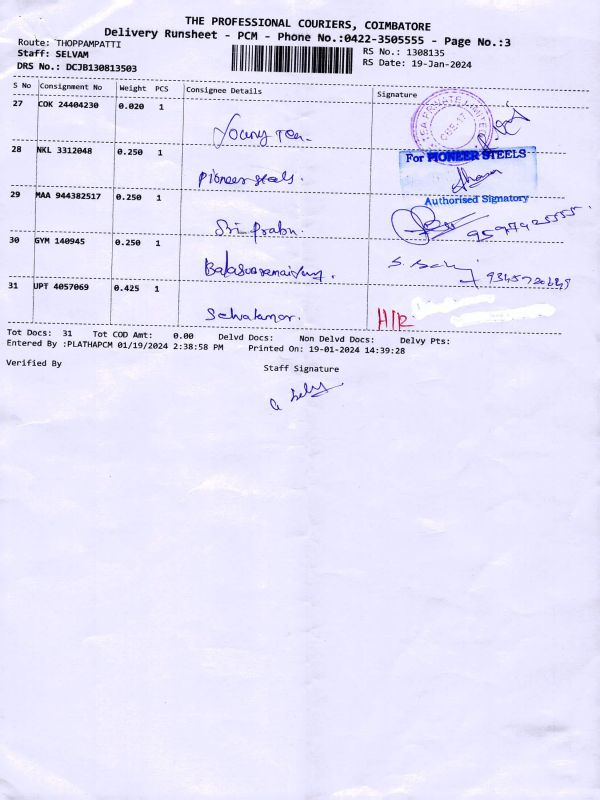 THE PROFESSIONAL COURIERS, COIMBATORE
Delivery Runsheet - PCM - Phone No.:0422-3505555 - Page No.:3
Route: THOPPAMPATTI
Staff: SELVAM
DRS No.: DCJB130813503
RS No.: 1308135
RS Date: 19-Jan-2024
S No Consignment No Weight PCS Consignee Details Signature
27 COK 24404230 0.020 1
Young Tea.
28 NKL 3312048 0.250 1
Pioneer steels.
For PIONEER STEELS
Authorised Signatory
29 MAA 944382517 0.250 1
Sri Prabu.
30 GYM 140945 0.250 1
31 UPT 4057069 0.425 1
Selvakumar. H/R
Tot Docs: 31 Tot COD Amt: 0.00 Delvd Docs: Non Delvd Docs: Delvy Pts:
Entered By :PLATHAPCM 01/19/2024 2:38:58 PM Printed On: 19-01-2024 14:39:28
Verified By Staff Signature